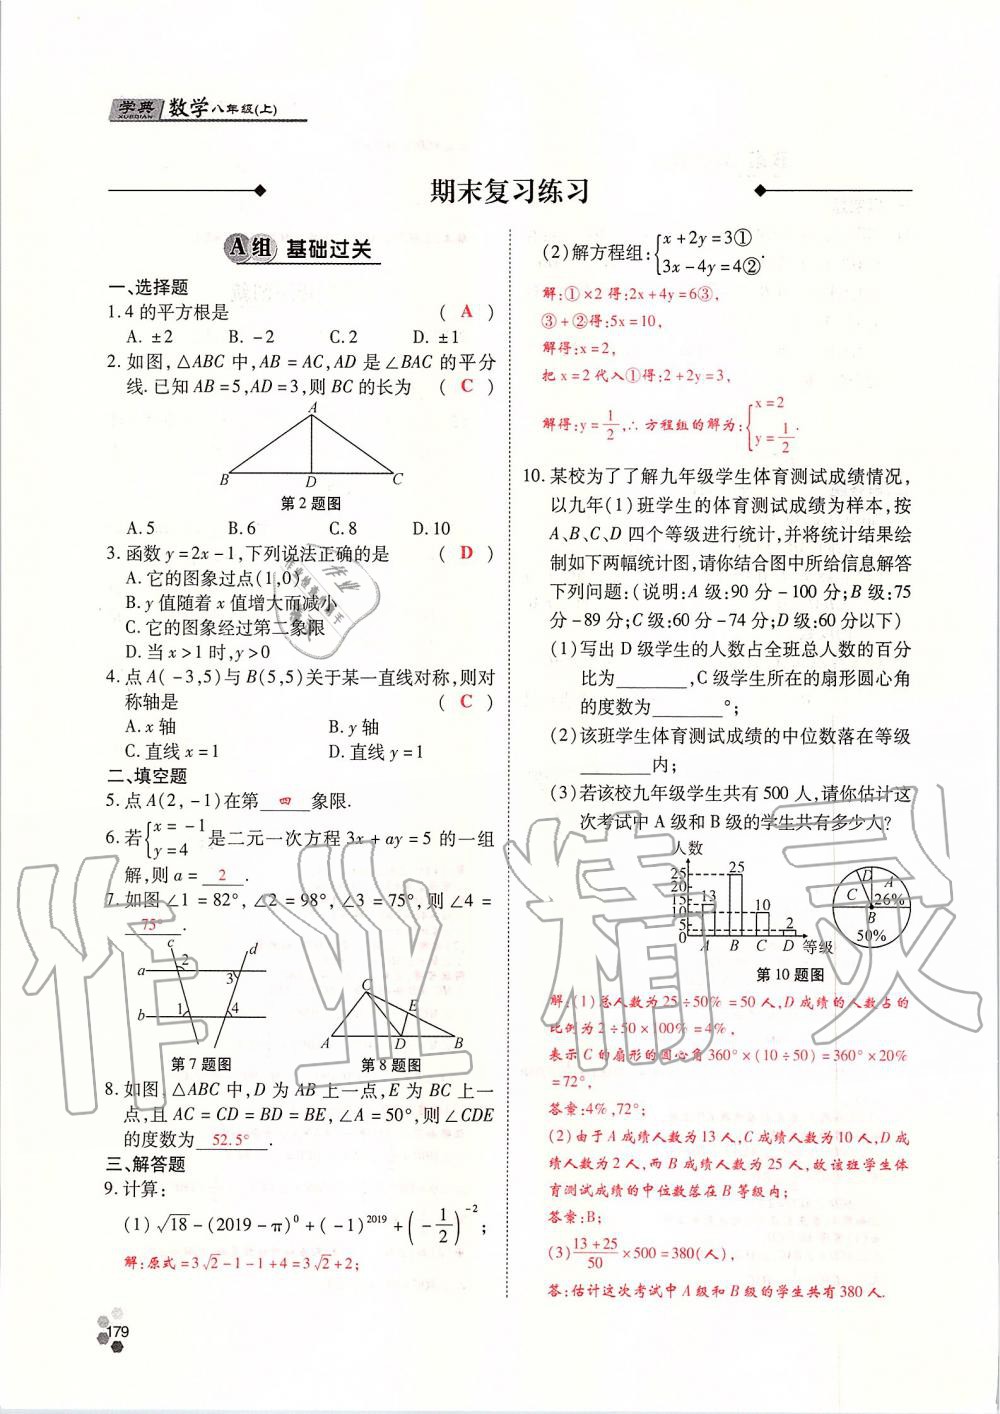 学典 数学八年级(上)
XUEDIAN
期末复习练习
A组 基础过关
一、选择题
1.4的平方根是 ( A )
A. ±2 B. -2 C.2 D. ±1
2. 如图,△ABC 中,AB = AC,AD 是∠BAC 的平分
线.已知 AB=5,AD=3,则 BC 的长为 ( C )
A
B D C
第2题图
A.5 B.6 C.8 D.10
3. 函数 y=2x-1,下列说法正确的是 ( D )
A.它的图象过点(1,0)
B.y值随着 x 值增大而减小
C.它的图象经过第二象限
D.当 x>1 时,y>0
4. 点A(-3,5)与B(5,5)关于某一直线对称,则对
称轴是 ( C )
A.x 轴 B.y 轴
C.直线 x=1 D.直线 y=1
二、填空题
5. 点A(2,-1)在第 四 象限.
6. 若{x=-1 y=4 是二元一次方程 3x+ay=5 的一组
解,则 a= 2 .
7. 如图∠1=82°,∠2=98°,∠3=75°,则∠4=
75° .
c d
a 2 3
b 1 4
第7题图
C E
A D B
第8题图
8. 如图,△ABC 中,D 为 AB 上一点,E 为 BC 上一
点,且 AC=CD=BD=BE,∠A=50°,则∠CDE
的度数为 52.5° .
三、解答题
9. 计算:
(1)√18-(2019-π)⁰+(-1)²⁰¹⁹+(-1/2)⁻²;
解:原式=3√2-1-1+4=3√2+2;
179
(2)解方程组:{x+2y=3① 3x-4y=4②.
解:①×2 得:2x+4y=6③,
③+②得:5x=10,
解得:x=2,
把 x=2 代入①得:2+2y=3,
解得:y=1/2,∴方程组的解为:{x=2 y=1/2.
10. 某校为了了解九年级学生体育测试成绩情况,
以九年(1)班学生的体育测试成绩为样本,按
A、B、C、D 四个等级进行统计,并将统计结果绘
制如下两幅统计图,请你结合图中所给信息解答
下列问题:(说明:A 级:90 分-100 分;B 级:75
分-89 分;C 级:60 分-74 分;D 级:60 分以下)
(1)写出 D 级学生的人数占全班总人数的百分
比为________,C 级学生所在的扇形圆心角
的度数为________°;
(2)该班学生体育测试成绩的中位数落在等级
________内;
(3)若该校九年级学生共有 500 人,请你估计这
次考试中 A 级和 B 级的学生共有多少人?
人数
25 20 15 10 5 0
13 25 10 2
A B C D 等级
D A 26%
C
B 50%
第10题图
解:(1)总人数为 25÷50%=50 人,D 成绩的人数占的
比例为 2÷50×100%=4%,
表示 C 的扇形的圆心角 360°×(10÷50)=360°×20%
=72°,
答案:4%,72°;
(2)由于 A 成绩人数为 13 人,C 成绩人数为 10 人,D 成
绩人数为 2 人,而 B 成绩人数为 25 人,故该班学生体
育测试成绩的中位数落在 B 等级内;
答案:B;
(3)(13+25)/50×500=380(人),
答:估计这次考试中 A 级和 B 级的学生共有 380 人.
作业精灵